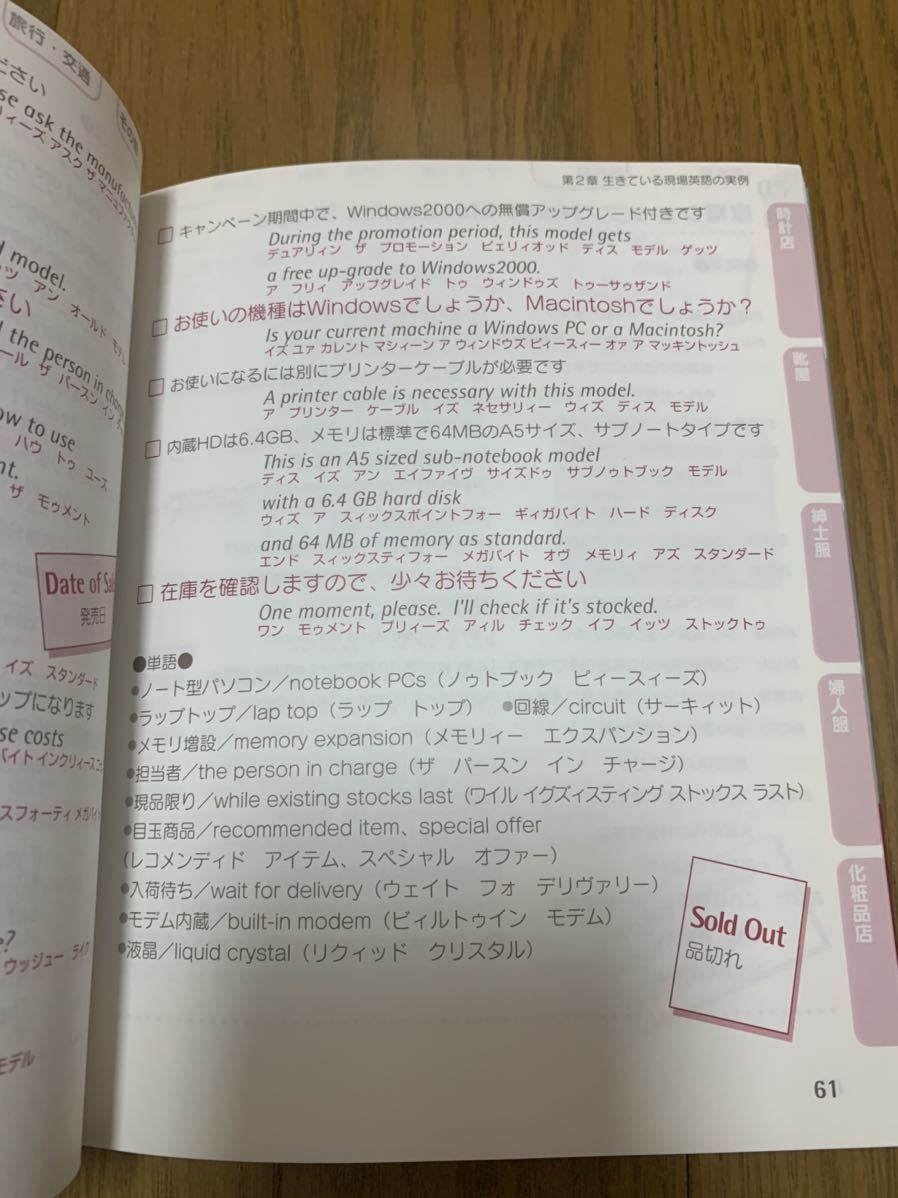 旅行・交通
ださい
se ask the manufactur
リィーズ アスク ザ マニュファクチ
d model.
ッツ アン オールド モデル
さい
l the person in charge
ール ザ パースン イン チャー
ow to use
ハウ トゥ ユーズ
nt.
ザ モゥメント
Date of Sale
発売日
イズ スタンダード
ップになります
se costs
バイト インクリィース コ
スフォーティ メガバイト
?
ウッジュー ライク
モデル
第2章 生きている現場英語の実例
□ キャンペーン期間中で、Windows2000への無償アップグレード付きです
During the promotion period, this model gets
デュアリィン ザ プロモーション ピェリィオッド ディス モデル ゲッツ
a free up-grade to Windows2000.
ア フリィ アップグレイド トゥ ウィンドゥズ トゥーサゥザンド
□ お使いの機種はWindowsでしょうか、Macintoshでしょうか?
Is your current machine a Windows PC or a Macintosh?
イズ ユァ カレント マシィーン ア ウィンドウズ ピィースィー オァ ア マッキントッシュ
□ お使いになるには別にプリンターケーブルが必要です
A printer cable is necessary with this model.
ア プリンター ケーブル イズ ネセサリィー ウィズ ディス モデル
□ 内蔵HDは6.4GB、メモリは標準で64MBのA5サイズ、サブノートタイプです
This is an A5 sized sub-notebook model
ディス イズ アン エイファイヴ サイズドゥ サブノゥトブック モデル
with a 6.4 GB hard disk
ウィズ ア スィックスポイントフォー ギィガバイト ハード ディスク
and 64 MB of memory as standard.
エンド スィックスティフォー メガバイト オヴ メモリィ アズ スタンダード
□ 在庫を確認しますので、少々お待ちください
One moment, please. I'll check if it's stocked.
ワン モゥメント プリィーズ アィル チェック イフ イッツ ストックトゥ
●単語●
●ノート型パソコン/notebook PCs(ノゥトブック ピィースィーズ)
●ラップトップ/lap top(ラップ トップ) ●回線/circuit(サーキィット)
●メモリ増設/memory expansion(メモリィー エクスパンション)
●担当者/the person in charge(ザ パースン イン チャージ)
●現品限り/while existing stocks last(ワイル イグズィスティング ストックス ラスト)
●目玉商品/recommended item、special offer
(レコメンディド アイテム、スペシャル オファー)
●入荷待ち/wait for delivery(ウェイト フォ デリヴァリー)
●モデム内蔵/built-in modem(ビィルトゥイン モデム)
●液晶/liquid crystal(リクィッド クリスタル)
Sold Out
品切れ
時計店
靴屋
紳士服
婦人服
化粧品店
61